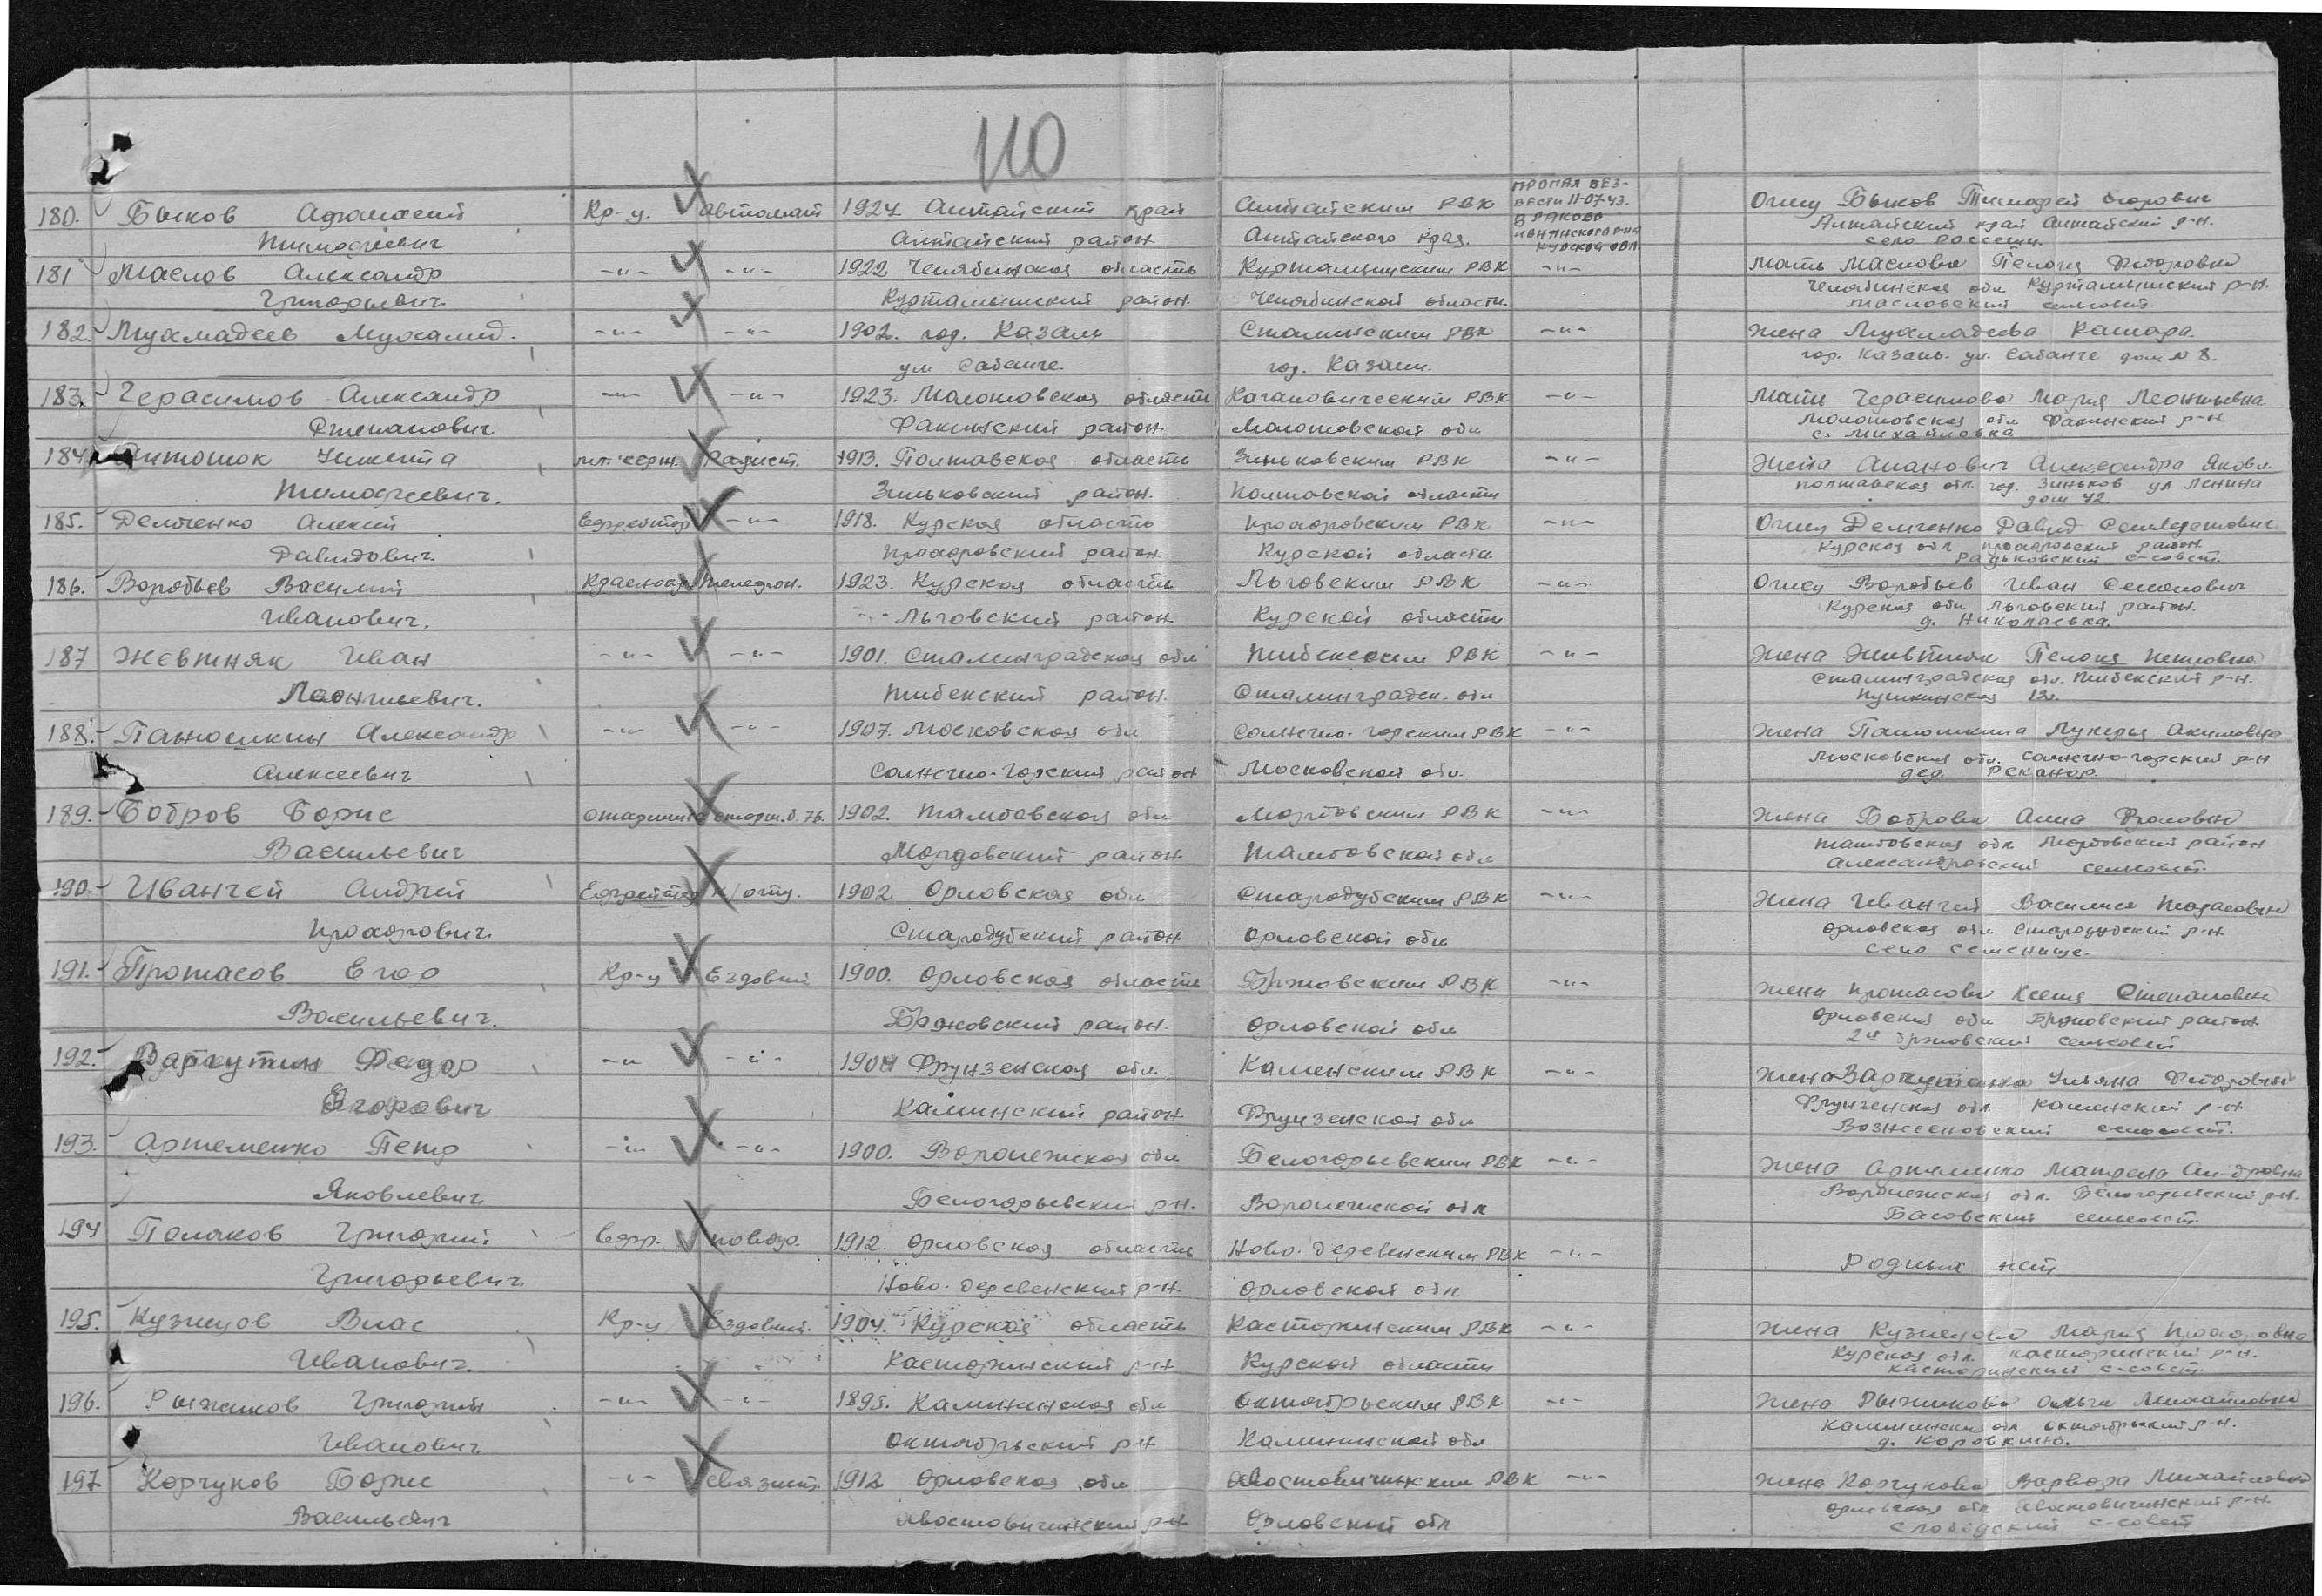 110
180. Быков Афанасий Кр-ц. Автомат 1924 Алтайский край Алтайским РВК ПРОПАЛ БЕЗ- Отец Быков Тимофей Егорович
ВЕСТИ 11-07-43.
В РАКОВО
Тимофеевич Алтайский район Алтайского края. ИВНЯНСКОГО Р-НА Алтайский край Алтайский р-н.
КУРСКОЙ ОБЛ. село Россоши.
181 Маслов Александр -"- -"- 1922 Челябинская область Куртамышским РВК -"- Мать Маслова Пелогея Федоровна
Григорьевич. Куртамышский район. Челябинской области. Челябинская обл Куртамышский р-н.
Масловский сельсовет.
182. Мухмадеев Мухамед. -"- -"- 1902. гор. Казань Сталинским РВК -"- Жена Мухмадеева Камара.
ул Сабанче. гор. Казани. гор. Казань. ул. Сабанче дом N 8.
183. Герасимов Александр -"- -"- 1923. Молотовская область Кагановическим РВК -"- Мать Герасимова Мария Леонтьевна
Степанович район Молотовской обл Молотовская обл р-н
с. Михайловка
184. Антонюк Никита мл. серж. Радист. 1913. Полтавская область Зиньковским РВК -"- Жена Александра Яковл.
Тимофеевич. Зиньковский район. Полтавской области Полтавская обл. гор. Зиньков ул Ленина
дом 42
185. Демченко Алексей Ефрейтор -"- 1918. Курская область Прохоровским РВК -"- Отец Демченко Давид
Давидович. Прохоровский район Курской области Курская обл Прохоровский район
с-совет.
186. Воробьев Василий Красноар Телефон. 1923. Курская область Льговским РВК -"- Отец Воробьев Иван Семенович
Иванович. -"- Льговский район Курской области Курская обл Льговский район.
д. Николаевка.
187 Жевтняк Иван -"- -"- 1901. Сталинградская обл РВК -"- Жена Жевтняк Пелогея Петровна
Леонтьевич. район. Сталинградск. обл Сталинградская обл. р-н.
Пушкинская
188. Панюшкин Александр -"- -"- 1907. Московская обл Солнечно-горским РВК -"- Жена Панюшкина Лукерья Акимовна
Алексеевич Солнечно-Горский район Московской обл. Московская обл. Солнечно-горский р-н
дер.
189. Бобров Борис Старшина Старш. б. 76. 1902. Тамбовская обл Мордовским РВК -"- Жена Боброва Анна Фроловна
Васильевич Мордовский район Тамбовской обл Тамбовская обл. Мордовский район
Александровский сельсовет.
190. Иванчей Андрей Ефрейтор 1902 Орловская обл Стародубским РВК -"- Жена Иванчей Василиса Тарасовна
Прохорович. Стародубский район Орловской обл Орловская обл Стародубский р-н.
село Семенище.
191. Протасов Егор Кр-ц Ездовый 1900. Орловская область РВК -"- Жена Протасова Ксения Степановна
Васильевич. район. Орловской обл Орловская обл район
сельсовет
192. Варкутин Федор -"- -"- 1904 Фрунзенская обл Каменским РВК -"- Жена Ульяна Федоровна
Егорович Каминский район Фрунзенской обл Фрунзенская обл. Каменский р-н
Вознесеновский сельсовет.
193. Артеменко Петр -"- -"- 1900. Воронежская обл Белогорьевским РВК -"- Жена Артеменко Матрена
Яковлевич Белогорьевский р-н. Воронежской обл Воронежская обл. Белогорьевский р-н.
Басовский сельсовет.
194 Поляков Григорий Ефр. повар. 1912. Орловская область Ново-Деревенским РВК -"- Родных нет
Григорьевич Ново-Деревенский р-н Орловской обл
195. Кузнецов Влас Кр-ц Ездовый. 1904. Курская область Касторинским РВК -"- Жена Кузнецова Мария Прохоровна
Иванович. Касторинский р-н Курской области Курская обл. Касторинский р-н.
Касторинский с-совет.
196. Рыжиков Григорий -"- -"- 1895. Калининская обл Октябрьским РВК -"- Жена Рыжикова Ольга Михайловна
Иванович Октябрьский р-н Калининской обл Калининская обл Октябрьский р-н.
д. Коровкино.
197 Корчуков Борис -"- Связист. 1912 Орловская обл Хвостовичинским РВК -"- Жена Корчукова Варвара Михайловна
Васильевич Хвостовичинский р-н Орловской обл Орловская обл Хвостовичинский р-н.
Слободский с-совет